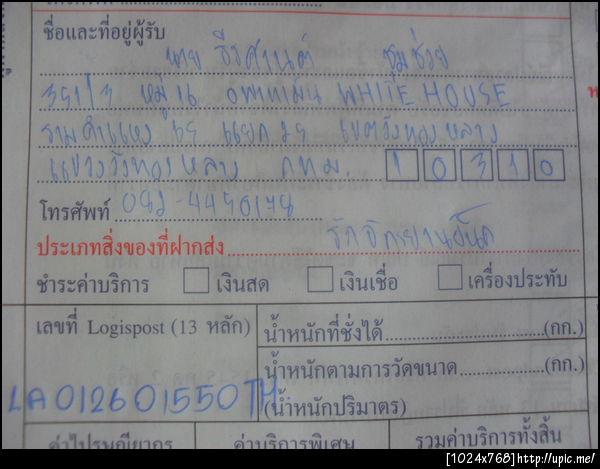 ชื่อและที่อยู่ผู้รับ
นาย ธีรศานต์ ชุ่มช่วย
351/3 หมู่ 16 อพาทเม้น WHITE HOUSE
รามคำแหง 65 แยก 25 เขตวังทองหลาง
แขวงวังทองหลาง กทม. 10310
โทรศัพท์ 082-4450178
ประเภทสิ่งของที่ฝากส่ง
ชำระค่าบริการ เงินสด เงินเชื่อ เครื่องประทับ
เลขที่ Logispost (13 หลัก) น้ำหนักที่ชั่งได้ (กก.)
น้ำหนักตามการวัดขนาด (กก.)
LA012601550TH (น้ำหนักปริมาตร)
ค่าไปรษณียากร ค่าบริการพิเศษ รวมค่าบริการทั้งสิ้น
[1024x768]http://upic.me/